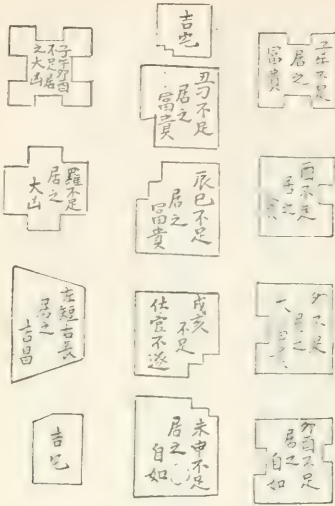 子午不足
居之
富貴
不足
居之
不足
卯酉不足
居之
自如
吉宅
丑不足
居之
富貴
辰巳不足
居之
富貴
戌亥
不足
仕宦不遂
未申不足
居之
自如
子午卯酉
不足居
之大凶
不足
居之
大凶
左短右長
居之
吉昌
吉宅